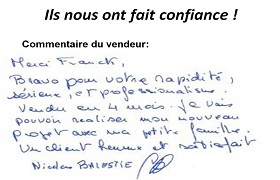 Ils nous ont fait confiance !
Commentaire du vendeur:
Merci Franck,
Bravo pour votre rapidité,
sérieux, et professionnalisme.
Vendu en 4 mois. Je vais
pouvoir realiser mon nouveau
projet avec ma petite famille.
Un client heureux et satisfait
Nicolas